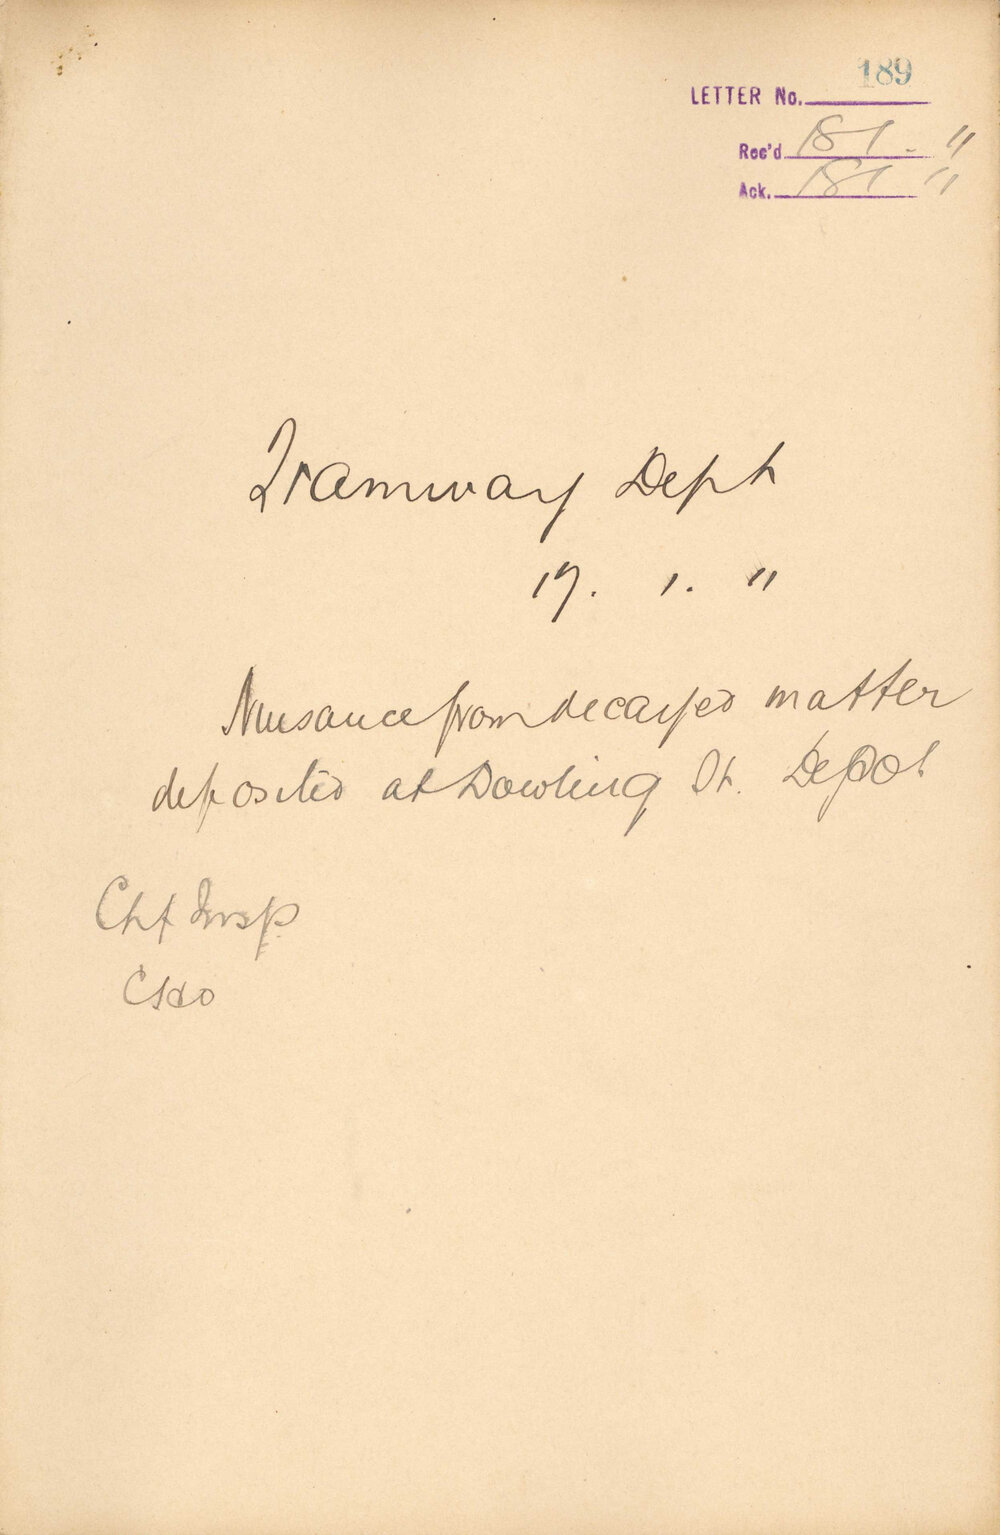 189
LETTER No.
Rec'd 18 1. 11
Ack. 18 1 11
Tramway Dept
17. 1. 11
Nuisance from decayed matter
deposited at Dowling St. Depot
Chf Insp